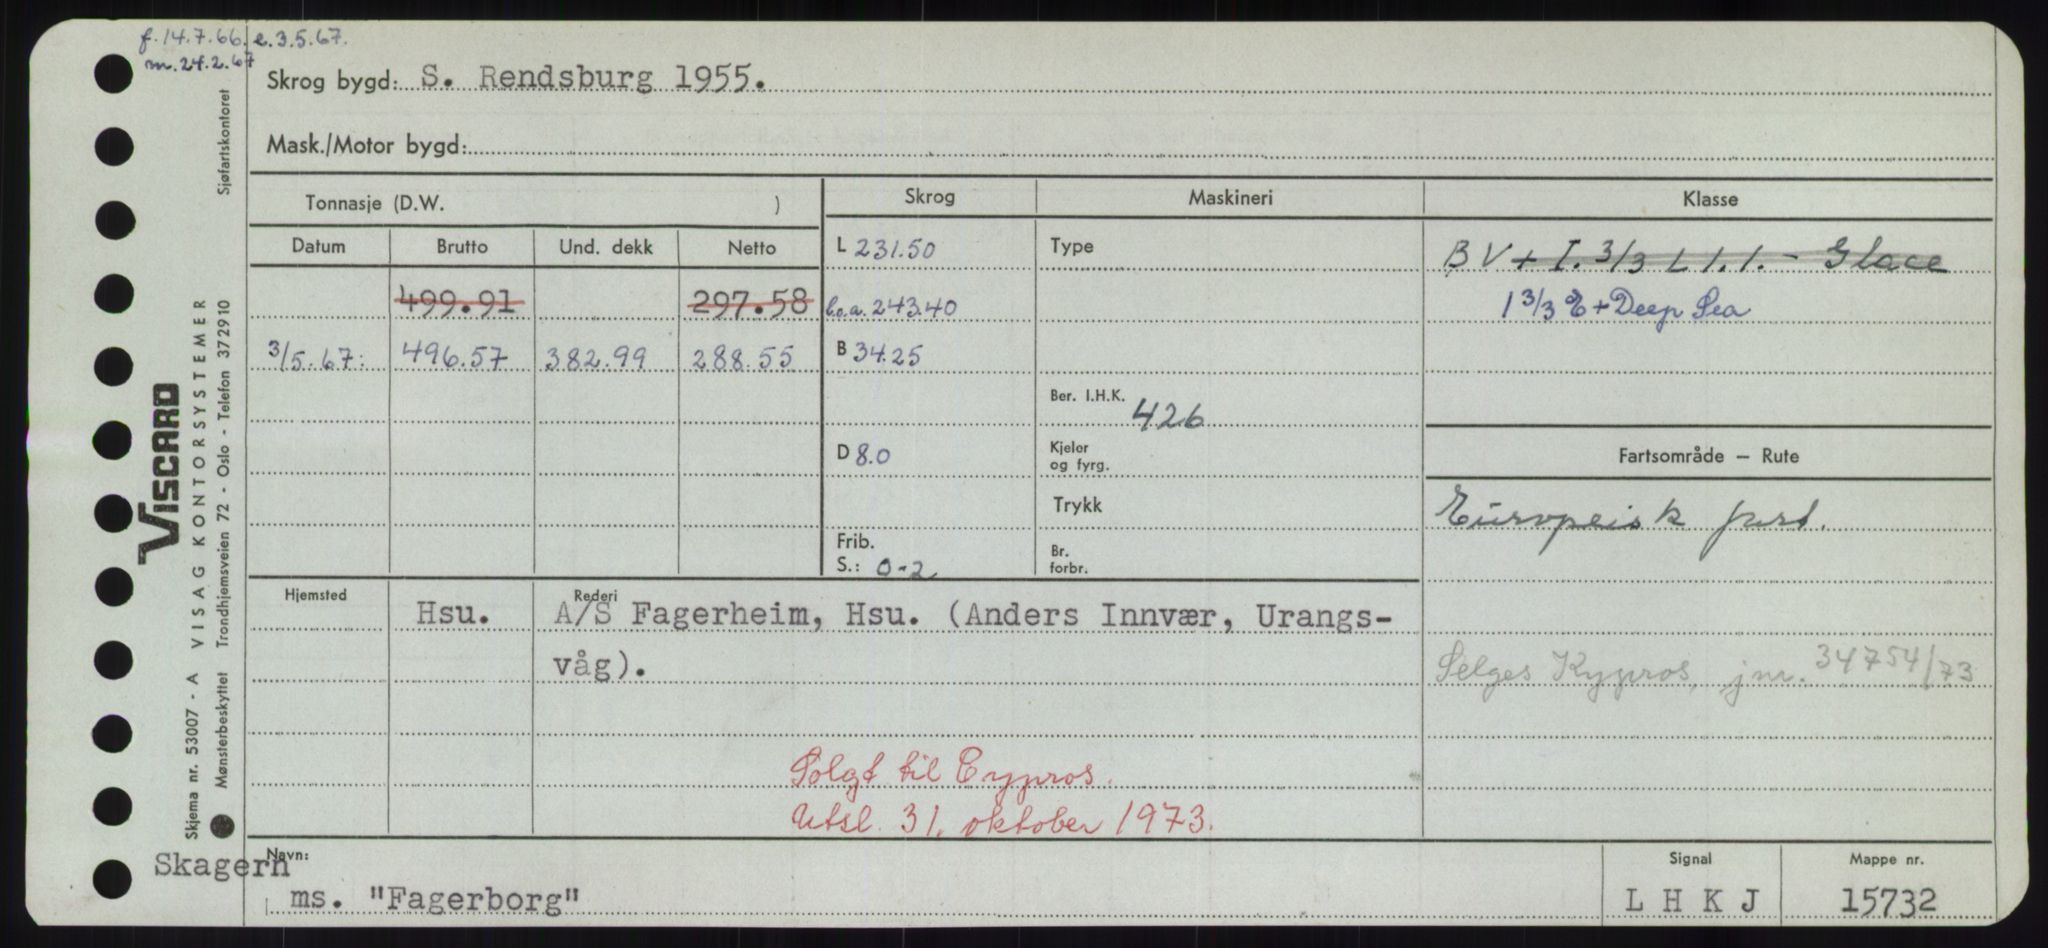 f. 14.7.66. e. 3.5.67.
m. 24.2.67
Skrog bygd: S. Rendsburg 1955.
Mask./Motor bygd:
Tonnasje (D.W. )
Skrog
Maskineri
Klasse
Datum Brutto Und. dekk Netto
L 231.50
Type
BV + I. 3/3 L 1.1. - Glace
499.91 297.58
l.o.a. 243.40
1 3/3 E + Deep Sea
3/5.67: 496.57 382.99 288.55
B 34.25
Ber. I.H.K. 426
D 8.0
Kjeler
og fyrg.
Fartsområde – Rute
Trykk
Europeisk fart.
Frib.
S.: 0-2
Br.
forbr.
Hjemsted
Rederi
Hsu. A/S Fagerheim, Hsu. (Anders Innvær, Urangs-
våg).
Selges Kypros, jnr. 34754/73
Solgt til Cypros.
Utsl. 31. oktober 1973.
Navn:
Skagern
ms. "Fagerborg"
Signal
L H K J
Mappe nr.
15732
VISCARD
Skjema nr. 53007 - A VISAG KONTORSYSTEMER
Mønsterbeskyttet Trondhjemsveien 72 - Oslo - Telefon 372910 Sjøfartskontoret